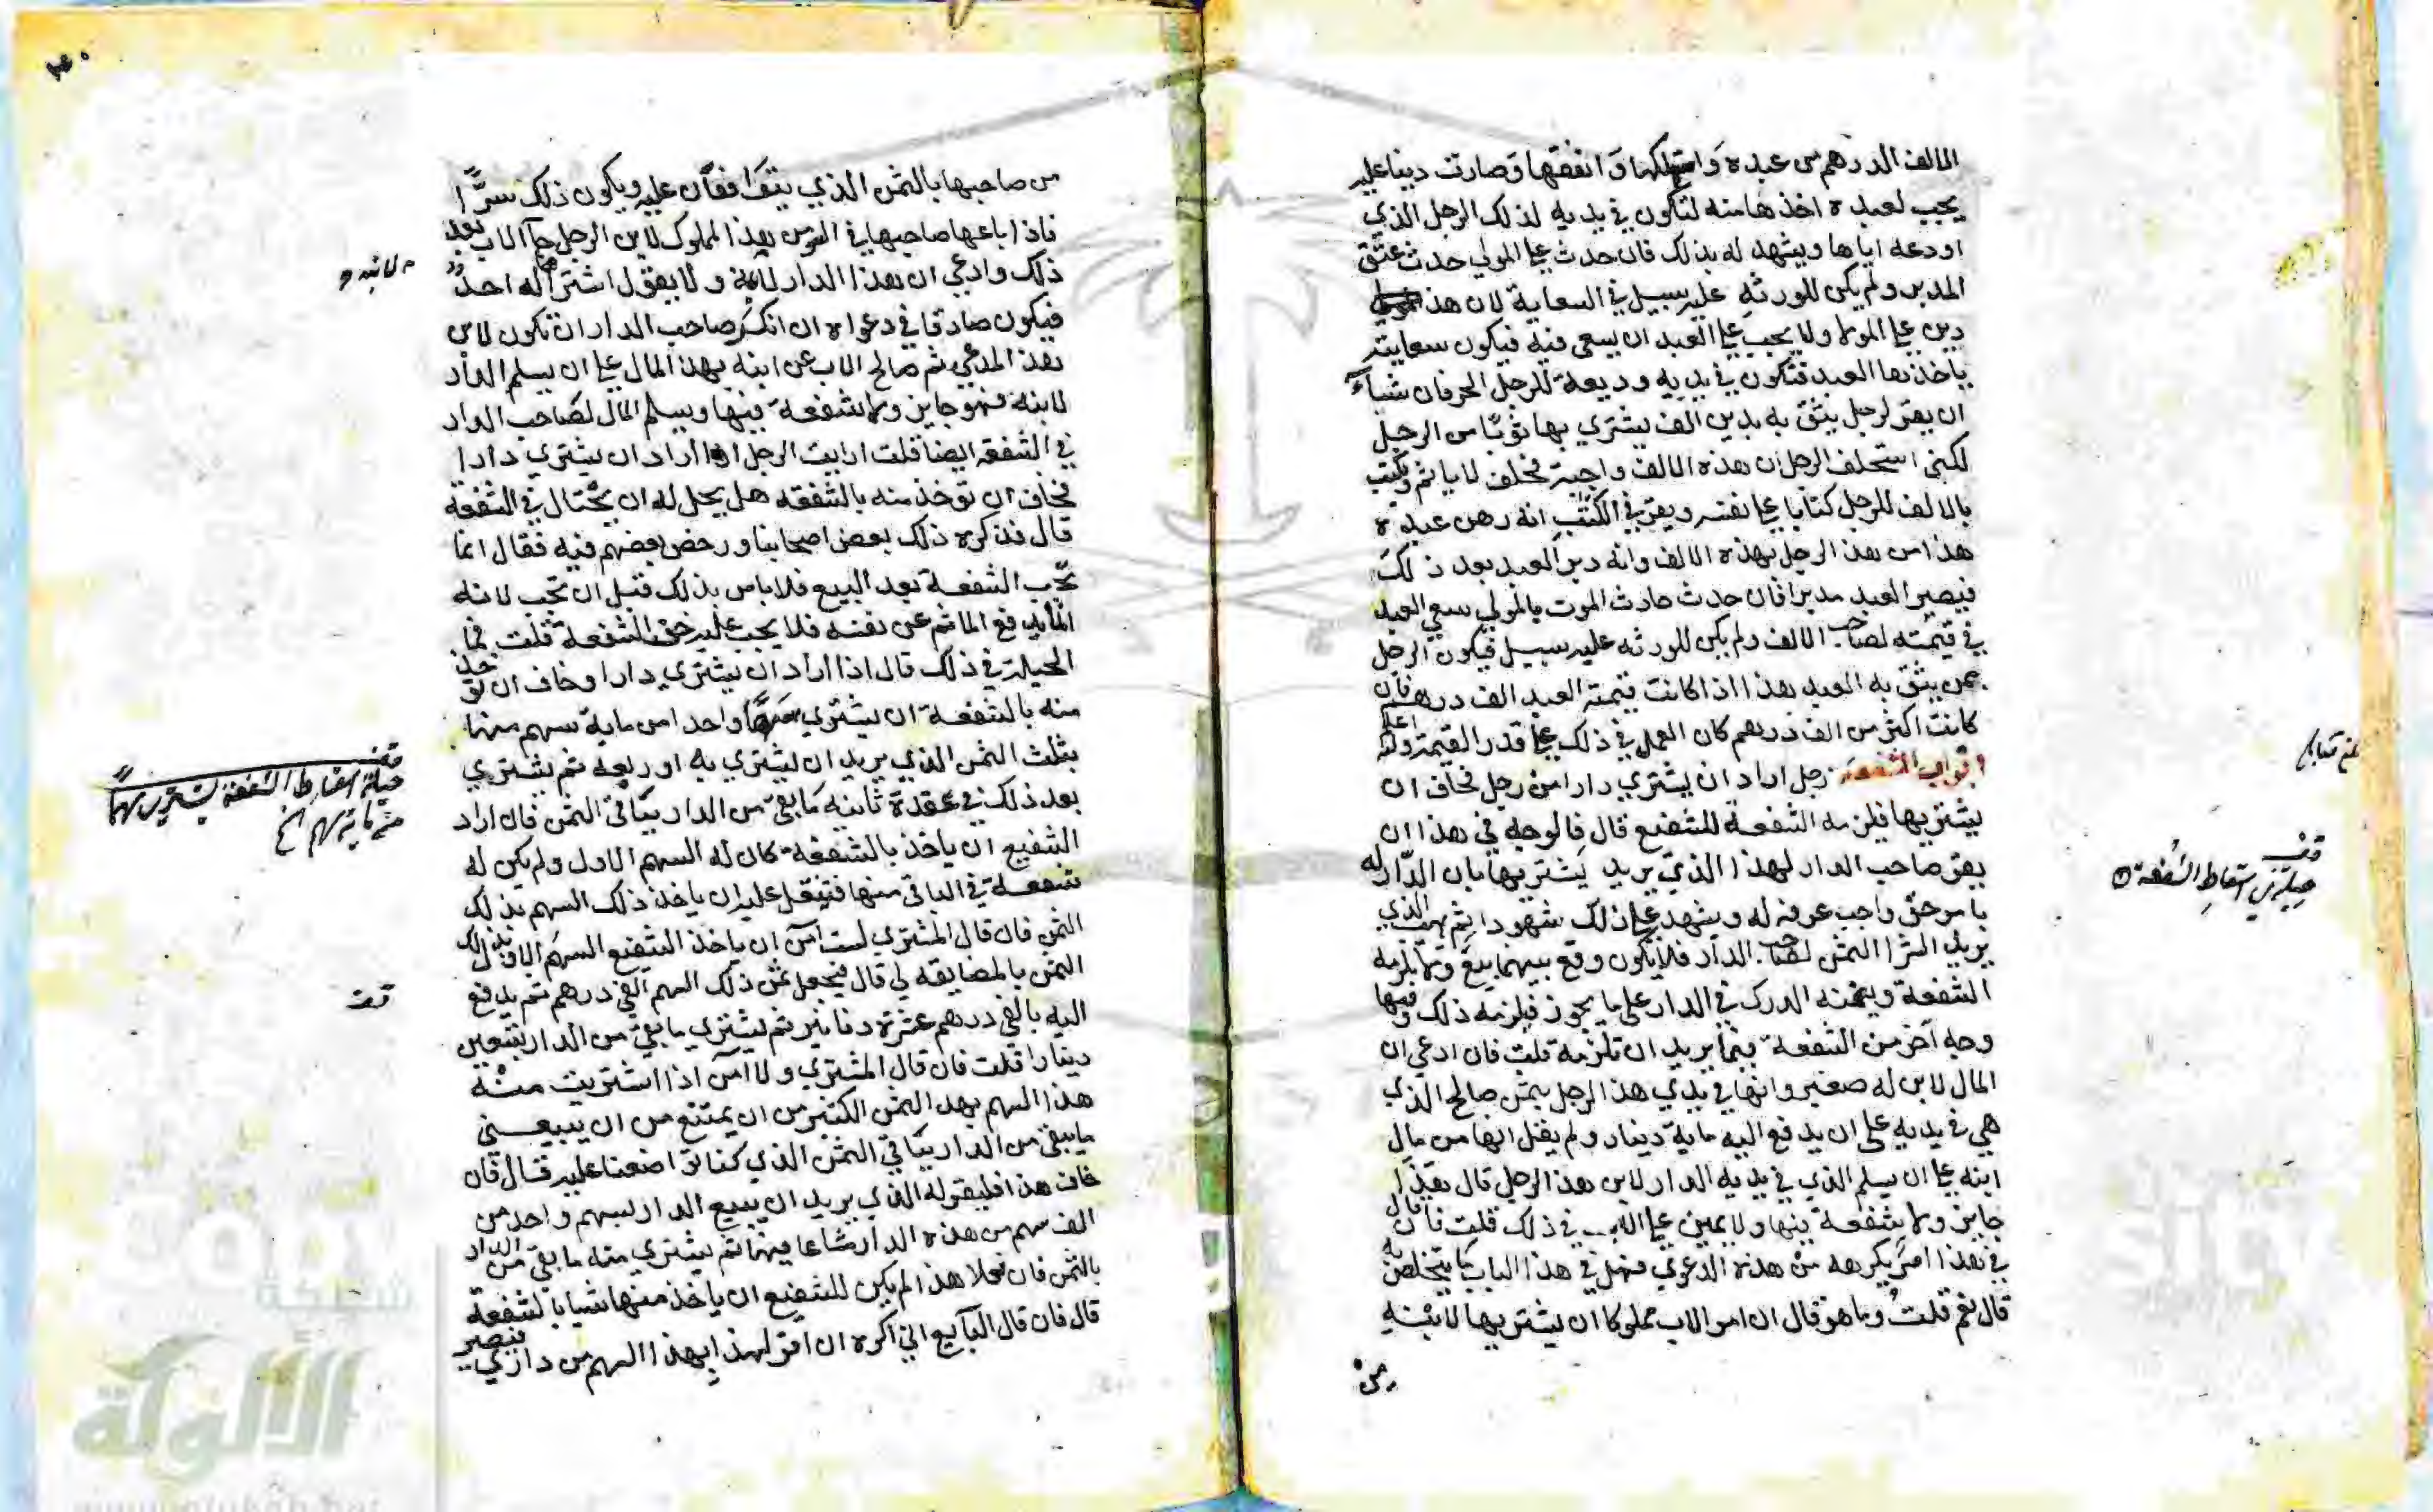 الالف الدرهم من عبده واستهلكها وانفقها وصارت دينا عليه
يجب لعبده اخذها منه لتكون في يديه لذلك الرجل الذي
اودعه اياها ويشهد له بذلك فان حدث على المولى حدث عتق
المدبر ولم يكن للورثه عليه سبيل في السعاية لان هذا
دين على المولى ولا يجب على العبد ان يسعى فيه فيكون سعايته
ياخذها العبد فتكون في يديه وديعة للرجل الحر فان شاء
ان يقر لرجل يثق به بدين الف يشتري بها ثوبا من الرجل
لكنى استحلف الرجل ان هذه الالف واجبة فحلف لا ياثم ويكتب
بالالف للرجل كتابا على نفسه ويقر في الكتب انه رهن عبده
هذا من هذا الرجل بهذه الالف وانه دبر العبد بعد ذلك
فيصير العبد مدبرا فان حدث حادث الموت بالمولى سعي العبد
في قيمته لصاحب الالف ولم يكن للورثه عليه سبيل فيكون الرجل
ممن يثق به العبد هذا اذا كانت قيمة العبد الف درهم فان
كانت اكثر من الف درهم كان العمل في ذلك على قدر القيمة والله اعلم
ابواب الشفعة رجل اراد ان يشتري دارا من رجل فخاف ان
يشتريها فيلزمه الشفعة للشفيع قال فالوجه في هذا ان
يقر صاحب الدار لهذا الذي يريد يشتريها بان الدار له
بامر حق واجب عرفه له ويشهد على ذلك شهودا ثم يهب الذي
يريد الشرا الثمن لصاحب الدار فلا يكون وقع بينهما بيع ولا يلزمه
الشفعة ويضمنه الدرك في الدار على ما يجوز فيلزمه ذلك وفيها
وجه آخر من الشفعة فيما يريد ان تلزمه قلت فان ادعى ان
المال لابن له صغير وانها في يدي هذا الرجل بثمن صالح الذي
هي في يديه على ان يدفع اليه ماية دينار ولم يقل انها من مال
ابنه على ان يسلم الذي في يديه الدار لابن هذا الرجل قال هذا
جايز ولا شفعة فيها ولا يمين على الاب في ذلك قلت فان قال
في هذا امر يكرهه من هذه الدعوي فهل في هذا الباب ما يتخلص به
قال نعم قلت وما هو قال ان امر الاب مملوكا ان يشتريها لابنه
من
لـ
وقف
حيلة في اسقاط الشفعة
من صاحبها بالثمن الذي يتوافقان عليه ويكون ذلك سرا
فاذا باعها صاحبها في السر من هذا المملوك لابن الرجل جا الاب بعد
ذلك وادعى ان هذا الدار لابنه ولا يقول اشتراها له احد
فيكون صادقا في دعواه ان انكر صاحب الدار ان تكون لابن
هذا المدعي ثم صالح الاب عن ابنه بهذا المال على ان يسلم الدار
لابنه فهو جايز ولا شفعة فيها ويسلم المال لصاحب الدار
في الشفعة ايضا قلت ارايت الرجل اذا اراد ان يشتري دارا
فخاف ان تؤخذ منه بالشفعه هل يحل له ان يحتال في الشفعة
قال فذكره ذلك بعض اصحابنا ورخص بعضهم فيه فقال انما
تجب الشفعة بعد البيع فلا باس بذلك قبل ان تجب لانه
انما يدفع الماثم عن نفسه فلا يجب عليه حق الشفعة قلت فما
الحيلة في ذلك قال اذا اراد ان يشتري دارا وخاف ان تؤخذ
منه بالشفعة ان يشتري سهما واحدا من ماية سهم منها
بثلث الثمن الذي يريد ان يشتري به او ربعه ثم يشتري
بعد ذلك في عقدة ثانيه ما بقي من الدار بباقي الثمن فان اراد
الشفيع ان ياخذ بالشفعة كان له السهم الاول ولم يكن له
شفعة في الباقي منها فيثقل عليه ان ياخذ ذلك السهم بذلك
الثمن فان قال المشتري لست آمن ان ياخذ الشفيع السهم الاول بذلك
الثمن بالمضايقه لي قال فيجعل ثمن ذلك السهم الفي درهم ثم يدفع
اليه بالفي درهم عشرة دنانير ثم يشتري ما بقي من الدار بتسعين
دينارا قلت فان قال المشتري ولا آمن اذا اشتريت منه
هذا السهم بهذا الثمن الكثير من ان يمتنع من ان يبيعني
ما يبقى من الدار بباقي الثمن الذي كنا تواضعنا عليه قال فان
خاف هذا فليقر له الذي يريد ان يبيع الدار بسهم واحد من
الف سهم من هذه الدار مشاعا فيها ثم يشتري منه ما بقي من الدار
بالثمن فان فعلا هذا لم يكن للشفيع ان ياخذ منها شيا بالشفعة
قال فان قال البايع اني اكره ان اقر لهذا بهذا السهم من داري فيصير
وقف
حيلة اسقاط الشفعة يشتري سهما
من ماية سهم الخ
وقف
شبكة
الألوكة